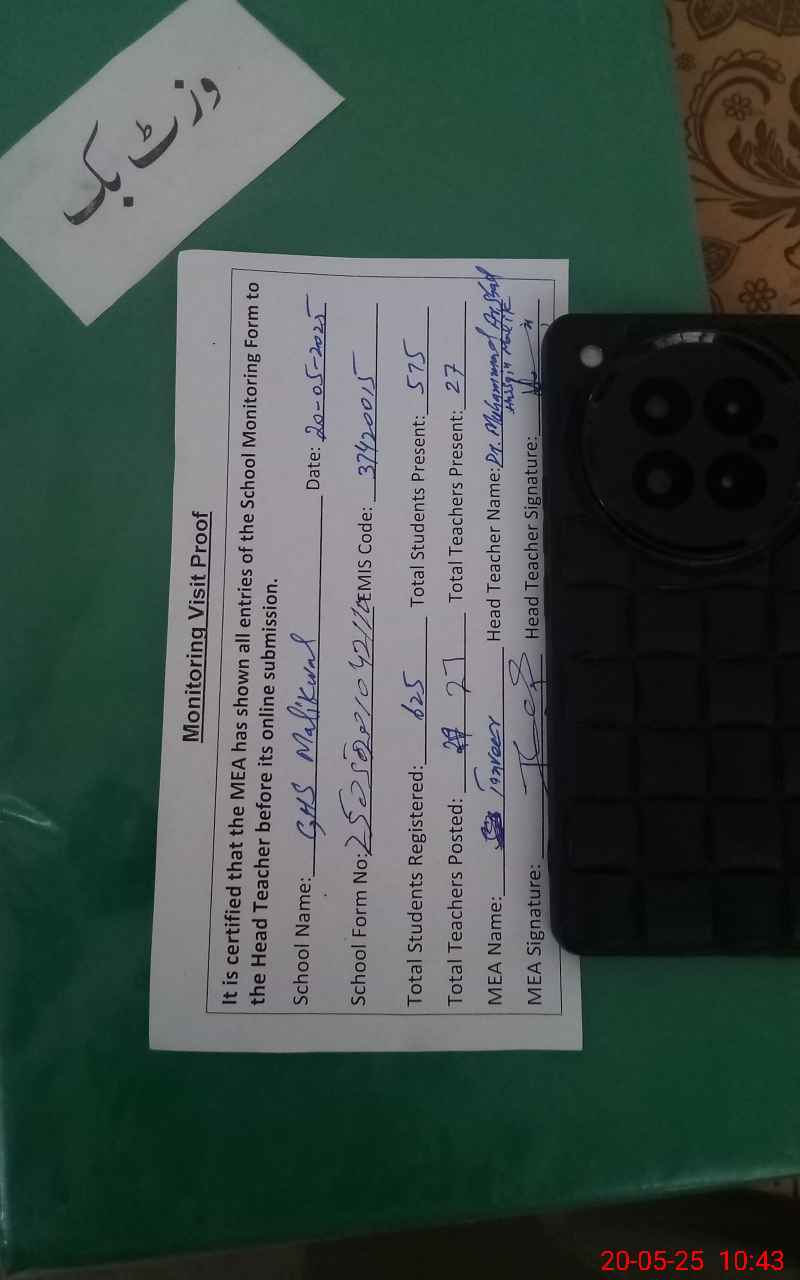 وزٹ بک
Monitoring Visit Proof
It is certified that the MEA has shown all entries of the School Monitoring Form to
the Head Teacher before its online submission.
School Name: GHS Malikwal Date: 20-05-2025
School Form No: EMIS Code: 37420015
Total Students Registered: 625 Total Students Present: 575
Total Teachers Posted: 27 Total Teachers Present: 27
MEA Name: Tanveer Head Teacher Name: Dr. Muhammad Arshad
MEA Signature: Head Teacher Signature:
20-05-25 10:43